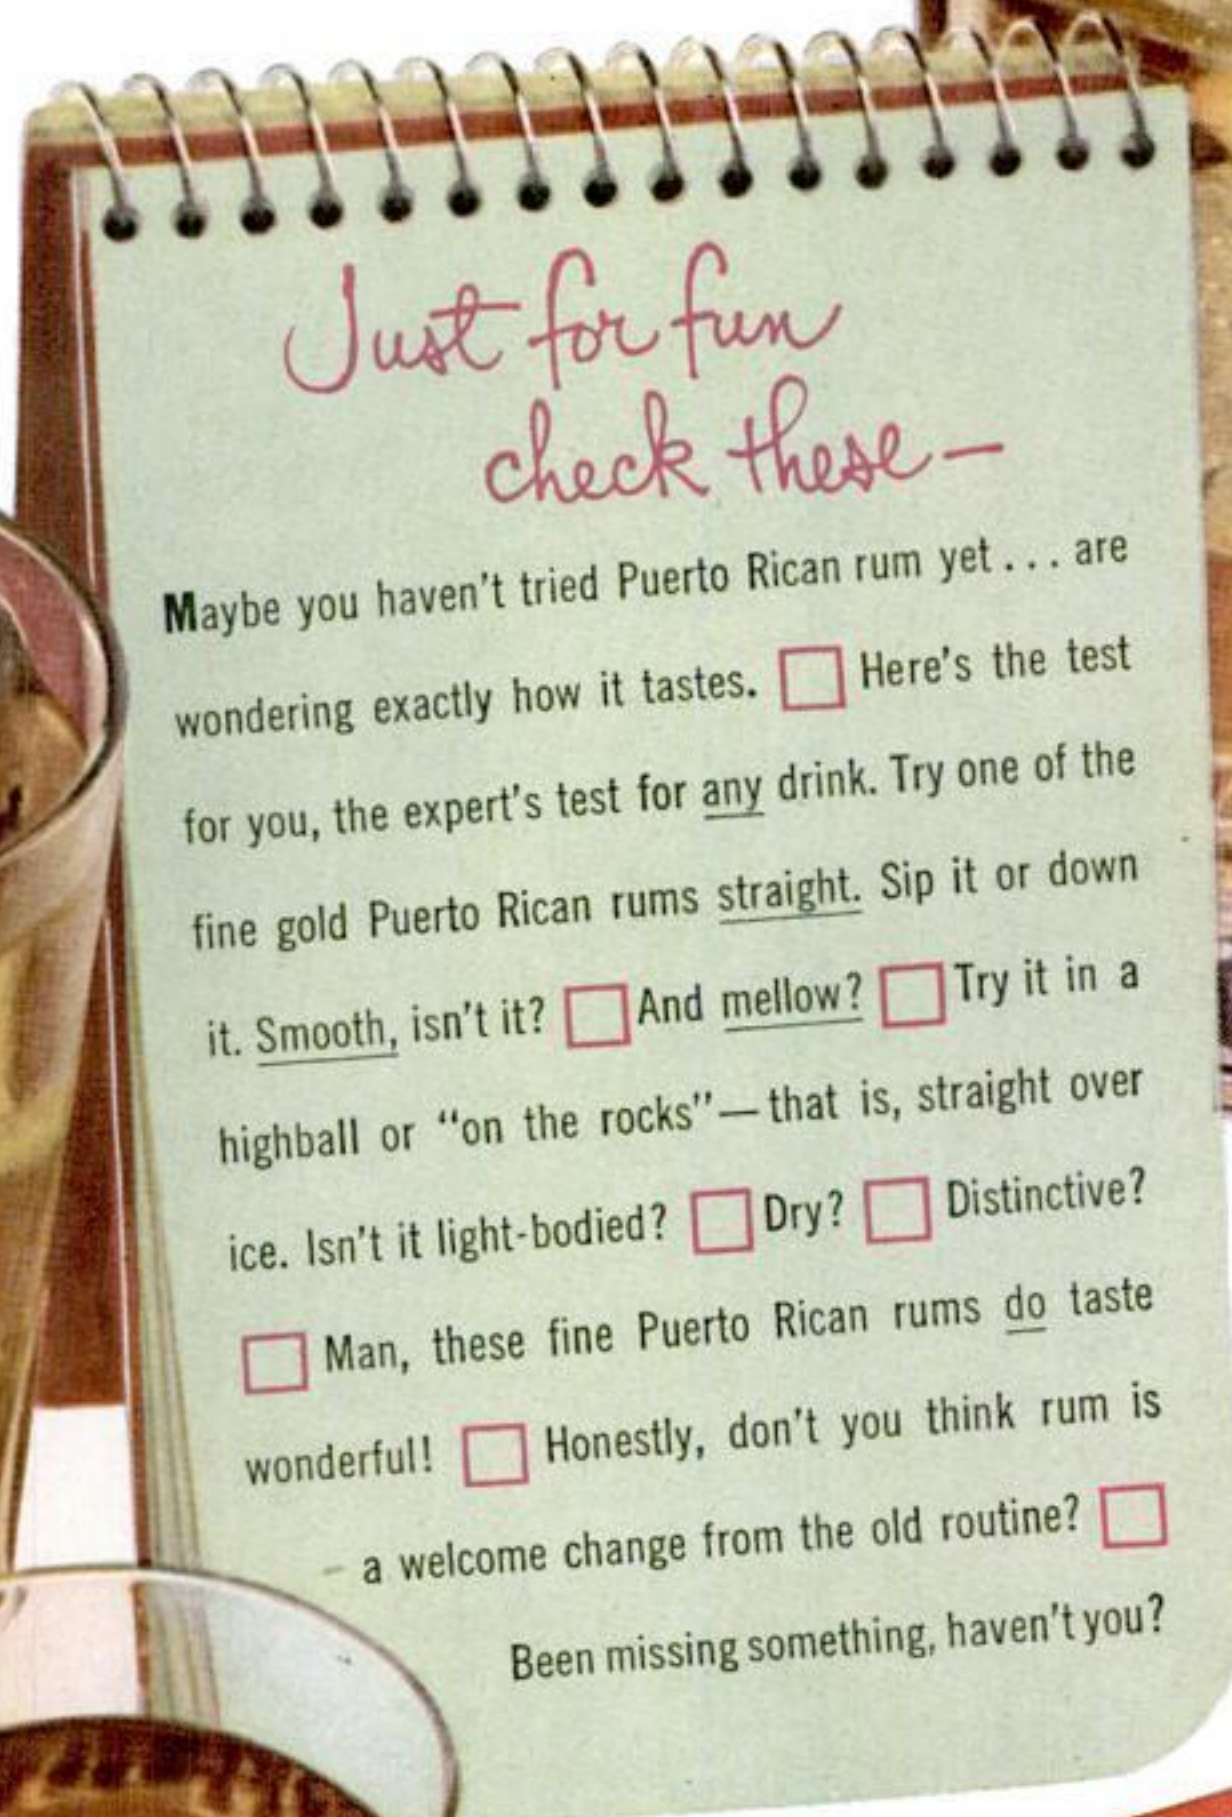 Just for fun
check these—
Maybe you haven't tried Puerto Rican rum yet... are
wondering exactly how it tastes. ☐ Here's the test
for you, the expert's test for any drink. Try one of the
fine gold Puerto Rican rums straight. Sip it or down
it. Smooth, isn't it? ☐ And mellow? ☐ Try it in a
highball or "on the rocks"—that is, straight over
ice. Isn't it light-bodied? ☐ Dry? ☐ Distinctive?
☐ Man, these fine Puerto Rican rums do taste
wonderful! ☐ Honestly, don't you think rum is
a welcome change from the old routine? ☐
Been missing something, haven't you?